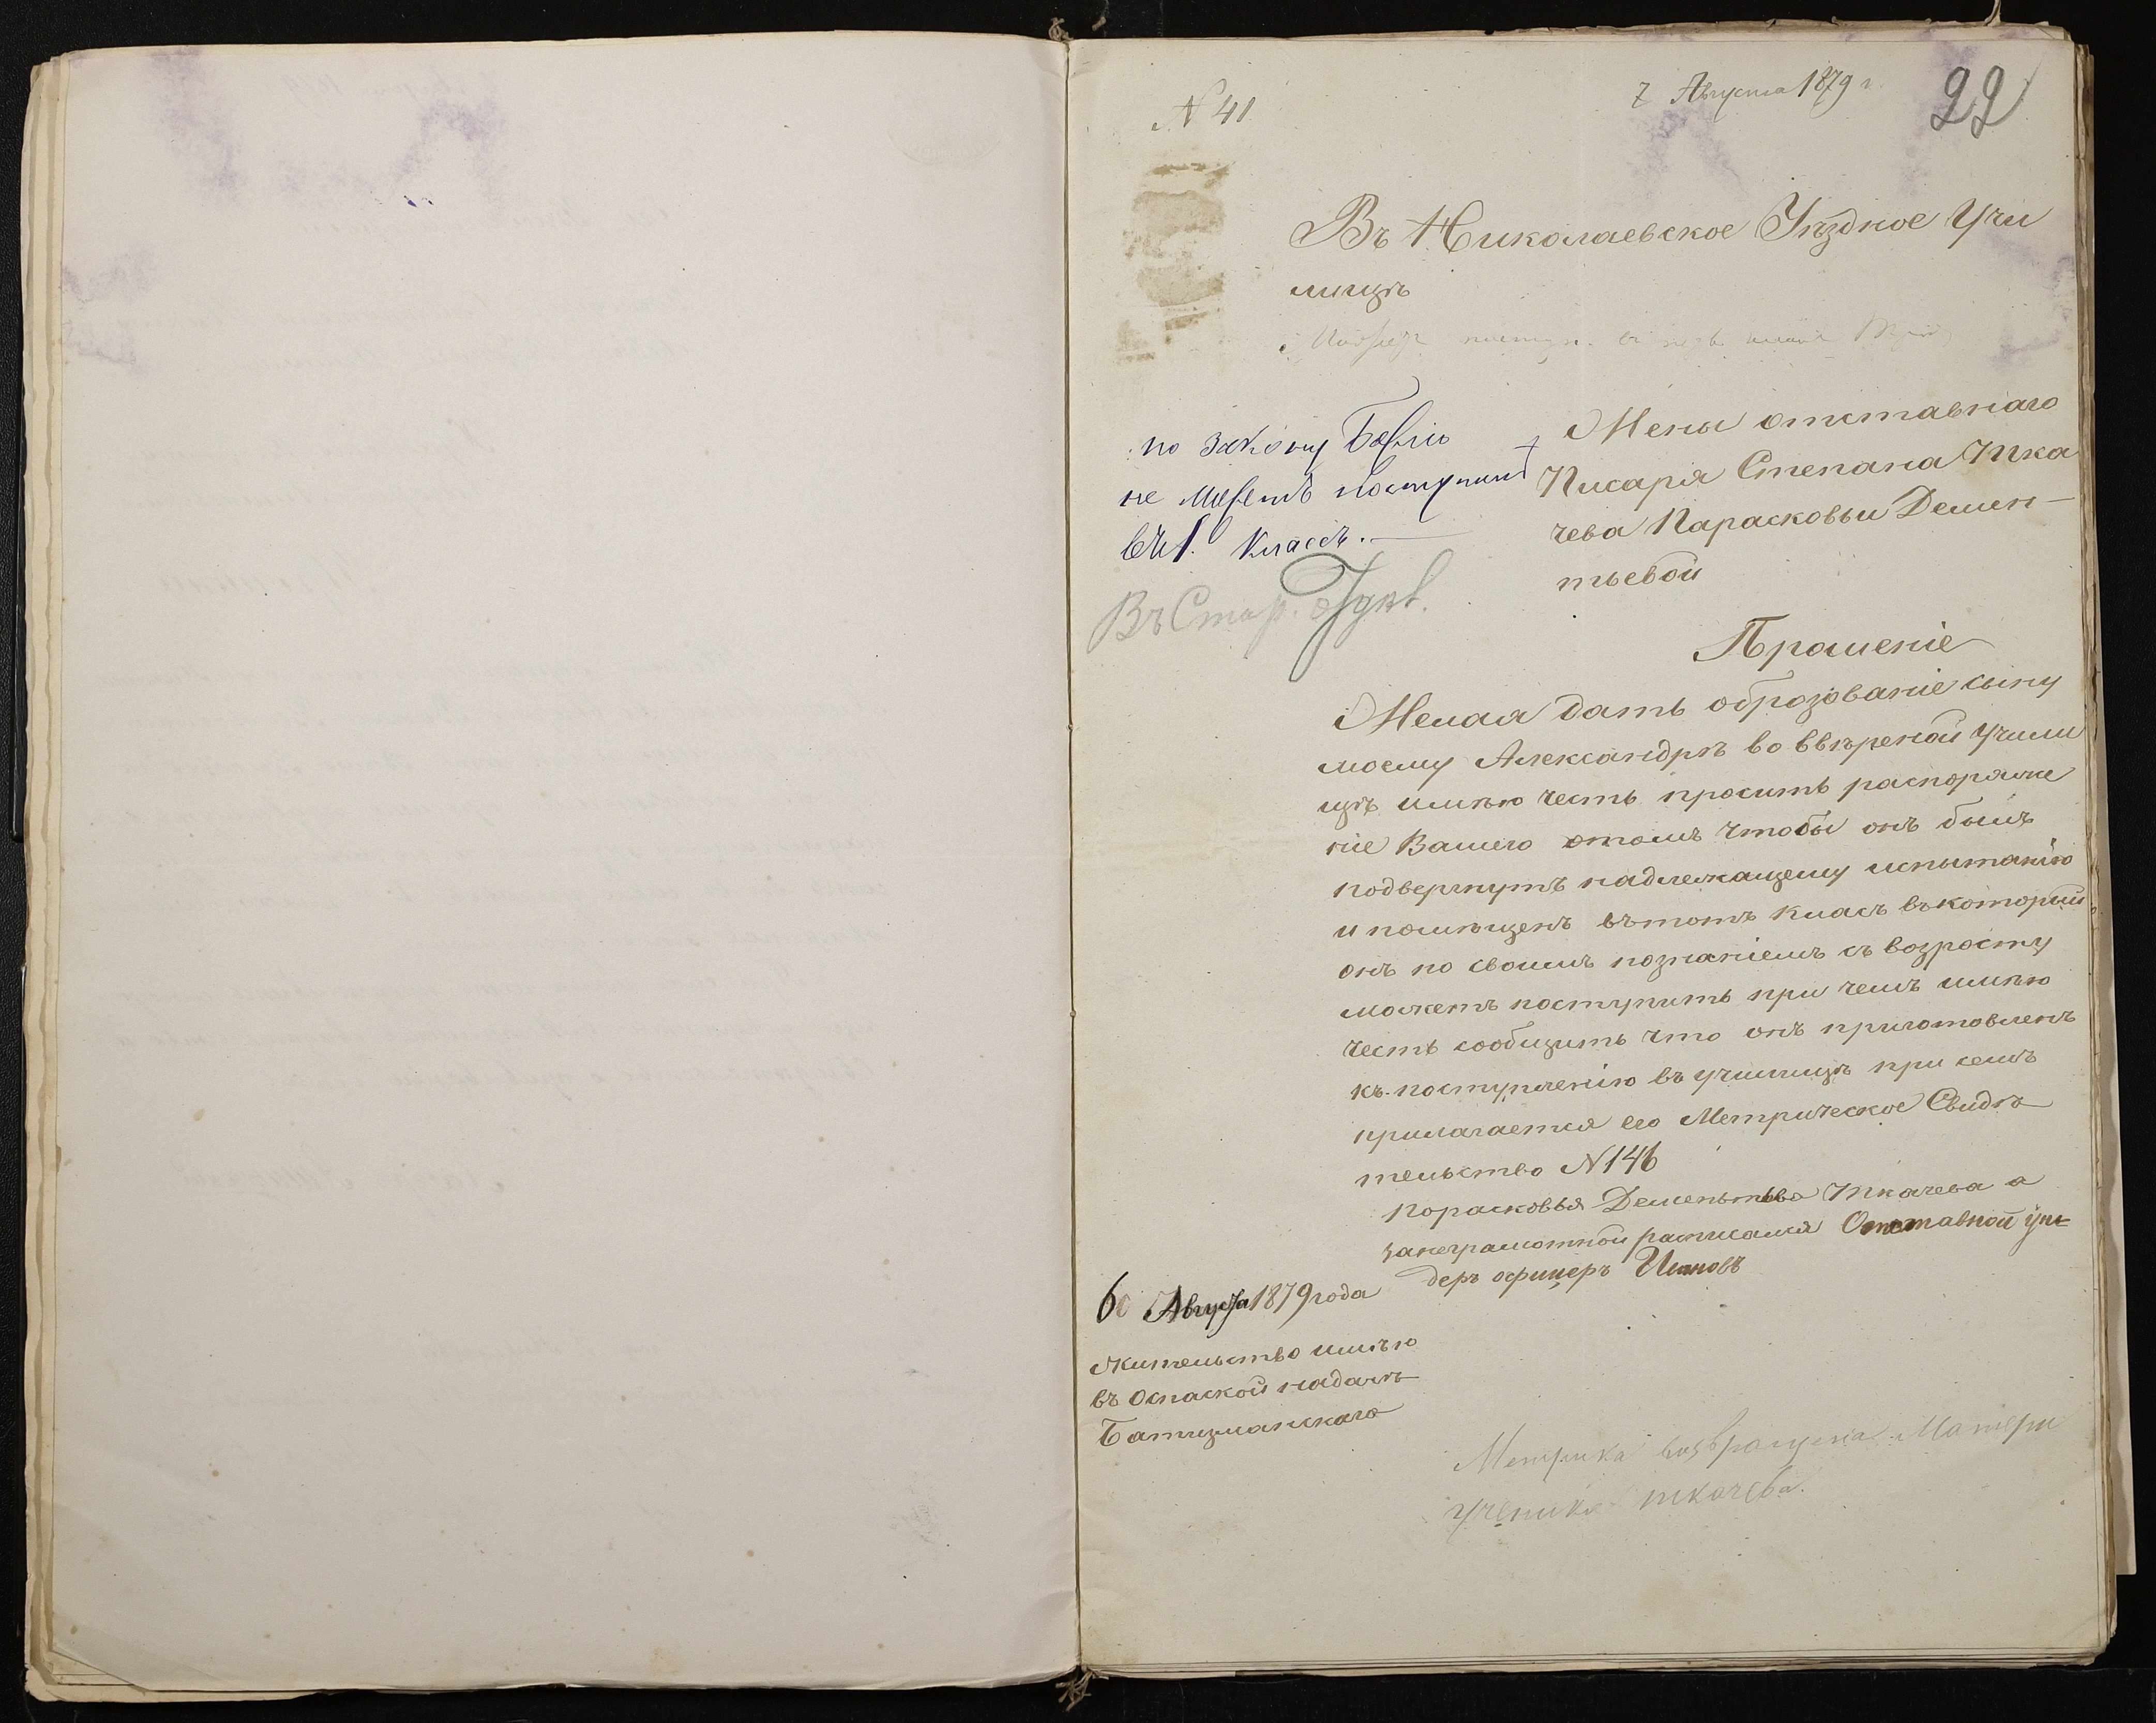 N 41
7 Августа 1879 г.
22
Въ Николаевское Уѣздное Учи
лищѣ
поступ. въ
по закону Божію
не можетъ поступить
въ 1. классъ.
Въ Стар. отдѣл.
Жены отставнаго
Писаря Степана Тка
чева Парасковьи Демен-
тьевой
Прошеніе
Желая дать образованіе сыну
моему Александрѣ во ввѣреной Учили
щѣ имѣю честь просить распоряже
ніе Вашего отомъ чтобы онъ былъ
подвергнутъ надлежащему испытанію
и помѣщенъ вътотъ класъ въкоторый
онъ по своимъ познаніемъ съ возросту
можетъ поступить при чемъ имѣю
честь сообщить что онъ приготовленъ
къ поступленію въ училищѣ при семъ
прилагается его Метрическое Свидѣ
тельство N 146
Порасковья Дементьева Ткачева а
занеграмотной расписался Отставной ун-
деръ офицеръ
6 Августа 1879 года
Жительство имѣю
въ Спаской надачѣ
Метрика возвращена Матери
Ученика Ткачева.